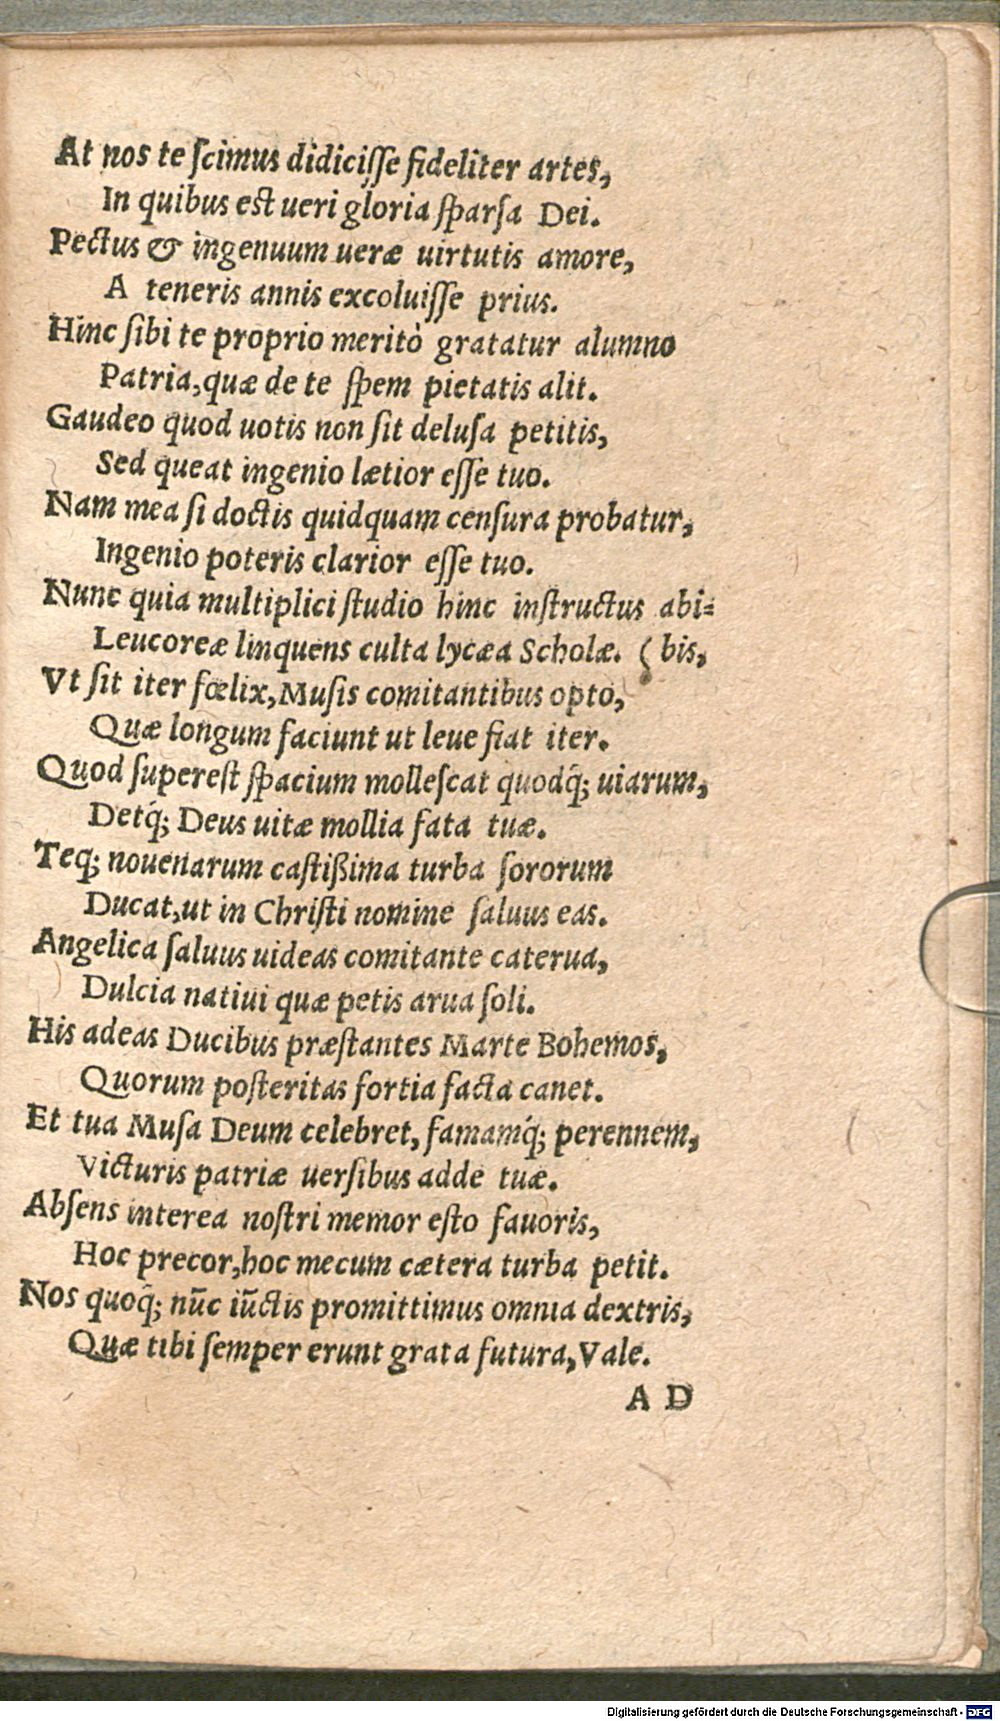 At nos te ſcimus didiciſſe fideliter artes,
In quibus est ueri gloria ſparſa Dei.
Pectus & ingenuum ueræ uirtutis amore,
A teneris annis excoluiſſe prius.
Hinc ſibi te proprio meritò gratatur alumno
Patria, quæ de te ſpem pietatis alit.
Gaudeo quod uotis non ſit deluſa petitis,
Sed queat ingenio lætior eſſe tuo.
Nam mea ſi doctis quidquam cenſura probatur,
Ingenio poteris clarior eſſe tuo.
Nunc quia multiplici ſtudio hinc inſtructus abi⸗
Leucoreæ linquens culta lycæa Scholæ. ( bis,
Vt ſit iter fœlix, Muſis comitantibus opto,
Quæ longum faciunt ut leue fiat iter.
Quod ſupereſt ſpacium molleſcat quodq́; uiarum,
Detq́; Deus uitæ mollia fata tuæ.
Teq; nouenarum caſtißima turba ſororum
Ducat, ut in Chriſti nomine ſaluus eas.
Angelica ſaluus uideas comitante caterua,
Dulcia natiui quæ petis arua ſoli.
His adeas Ducibus præſtantes Marte Bohemos,
Quorum poſteritas fortia facta canet.
Et tua Muſa Deum celebret, famamq́; perennem,
Victuris patriæ uerſibus adde tuæ.
Abſens interea noſtri memor eſto fauoris,
Hoc precor, hoc mecum cætera turba petit.
Nos quoq́; nūc iūctis promittimus omnia dextris,
Quæ tibi ſemper erunt grata futura, Vale.
A D
Digitalisierung gefördert durch die Deutsche Forschungsgemeinschaft - DFG